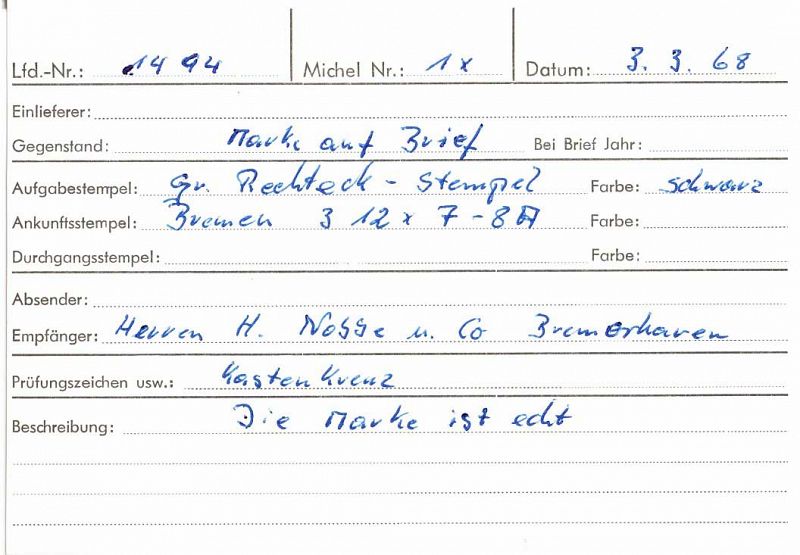 Lfd.-Nr.: 1494 Michel Nr.: 1x Datum: 3. 3. 68
Einlieferer:
Gegenstand: Marke auf Brief Bei Brief Jahr:
Aufgabestempel: gr. Rechteck - Stempel Farbe: schwarz
Ankunftsstempel: Bremen 3 12 x 7 - 8 Farbe:
Durchgangsstempel: Farbe:
Absender:
Empfänger: Herren H. u. Co Bremerhaven
Prüfungszeichen usw.: Kastenkreuz
Beschreibung: Die Marke ist echt